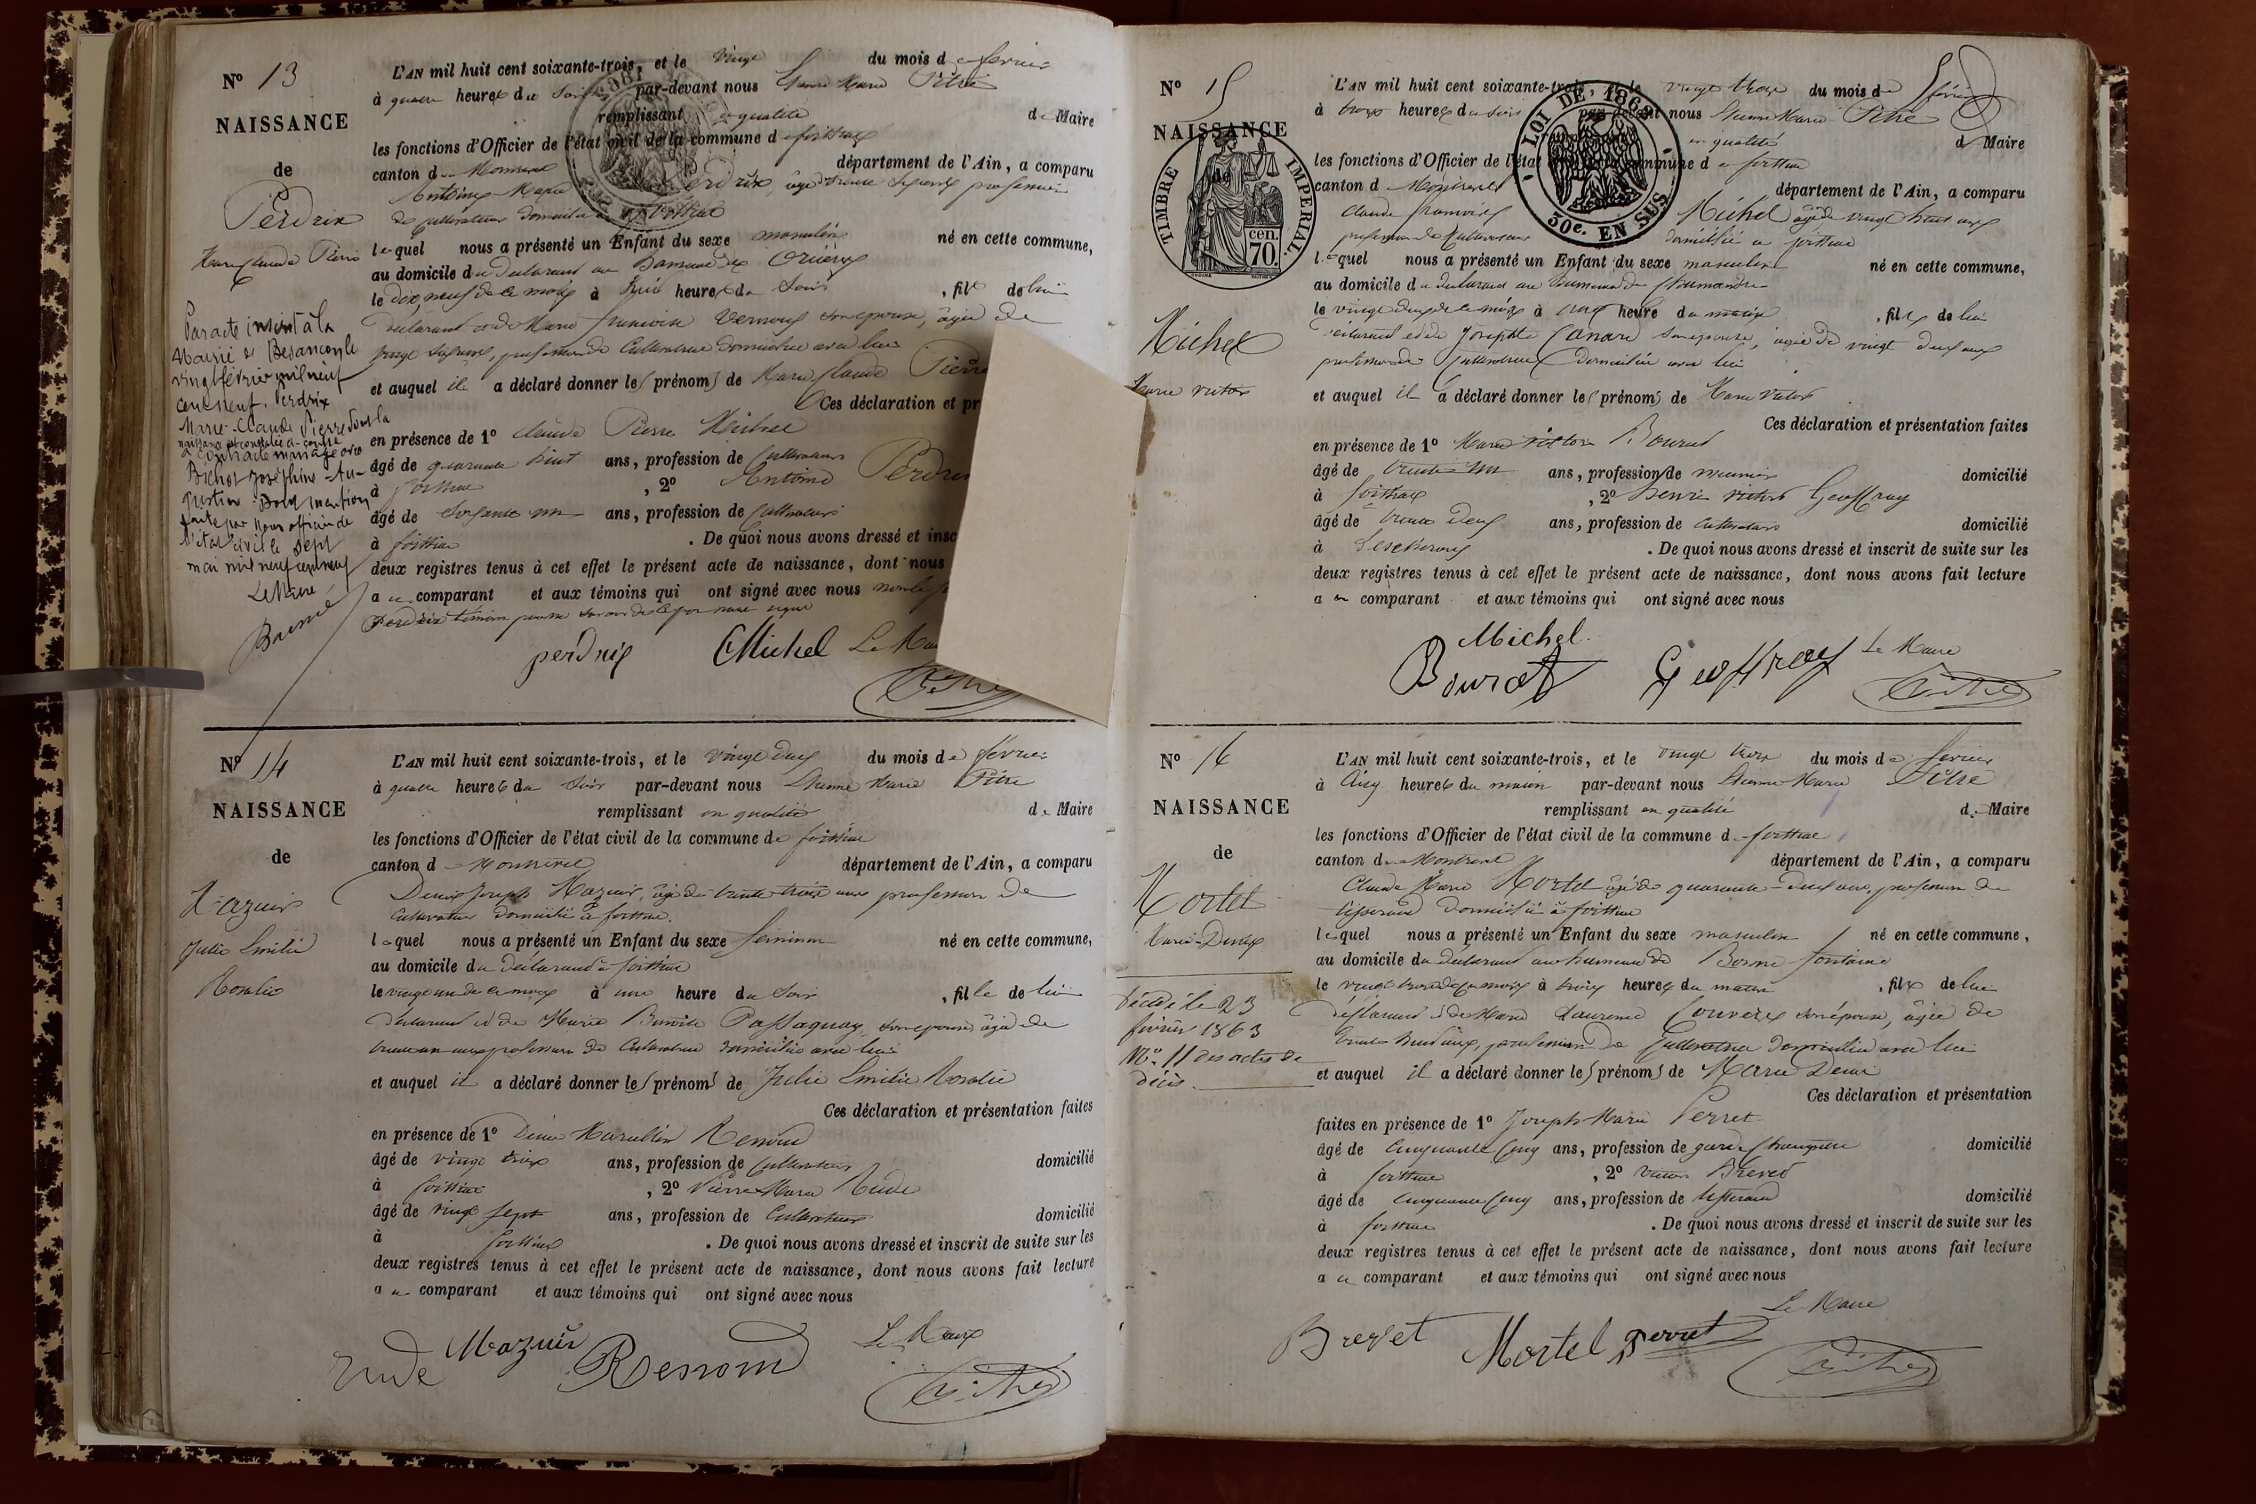 N° 13
NAISSANCE
de
Perdrix
Marie Claude Pierre
Par acte inscrit à la
Mairie de Besançon le
vingt février mil neuf
cent neuf, Perdrix
Marie-Claude Pierre dont la
naissance est constatée ci-contre
a contracté mariage avec
Bichot Joséphine Au-
gustine. Dont mention
faite par nous officier de
l'état civil le sept
mai mil neuf cent neuf
Le Maire
L'AN mil huit cent soixante-trois, et le vingt du mois de février
à quatre heures du soir par-devant nous Etienne Marie Pitre
remplissant en qualité de Maire
les fonctions d'Officier de l'état civil de la commune de foissiat
canton de Montrevel département de l'Ain, a comparu
Antoine Marie Perdrix, âgé de trente ans profession
de cultivateur domicilié à foissiat
lequel nous a présenté un Enfant du sexe masculin né en cette commune,
au domicile du déclarant au hameau des
le dix neuf de ce mois à huit heures du soir, fils de lui
déclarant et de Marie françoise son épouse, âgée de
vingt profession de Cultivatrice domiciliée avec lui
et auquel il a déclaré donner les prénoms de Marie Claude Pierre
Ces déclaration et pr
en présence de 1° Claude Pierre Michel
âgé de quarante huit ans, profession de Cultivateur
à foissiat, 2° Antoine Perdrix
âgé de soixante un ans, profession de Cultivateur
à foissiat. De quoi nous avons dressé et insc
deux registres tenus à cet effet le présent acte de naissance, dont nous
a au comparant et aux témoins qui ont signé avec nous
Perdrix témoin pour ne savoir de ce par nous requis
perdrix CMichel Le Mai
Pitre
N° 14
NAISSANCE
de
Mazuir
Julie Emilie
Rosalie
L'AN mil huit cent soixante-trois, et le vingt deux du mois de février
à quatre heures du soir par-devant nous Etienne Marie Pitre
remplissant en qualité de Maire
les fonctions d'Officier de l'état civil de la commune de foissiat
canton de Montrevel département de l'Ain, a comparu
Denis Joseph Mazuir, âgé de trente trois ans profession de
Cultivateur domicilié à foissiat.
lequel nous a présenté un Enfant du sexe féminin né en cette commune,
au domicile du déclarant à foissiat
le vingt un de ce mois à une heure du soir, fille de lui
déclarant et de Marie Benoite Passaquay, son épouse âgée de
trente un ans profession de Cultivatrice domiciliée avec lui
et auquel il a déclaré donner les prénoms de Julie Emilie Rosalie
Ces déclaration et présentation faites
en présence de 1° Denis Marcellin Renoud
âgé de vingt trois ans, profession de Cultivateur domicilié
à foissiat, 2° Pierre Marie Rude
âgé de vingt sept ans, profession de Cultivateur domicilié
à foissiat. De quoi nous avons dressé et inscrit de suite sur les
deux registres tenus à cet effet le présent acte de naissance, dont nous avons fait lecture
a au comparant et aux témoins qui ont signé avec nous
Rude Mazuir Renoud Le Maire
Pitre
N° 15
NAISSANCE
de
TIMBRE IMPÉRIAL
70 cen.
LOI DE 1862
30c. EN SUS
Michel
Marie victor
L'AN mil huit cent soixante-trois, et le vingt trois du mois de février
à trois heures du soir par-devant nous Etienne Marie Pitre
en qualité de Maire
les fonctions d'Officier de l'état civil de la commune de foissiat
canton de Montrevel département de l'Ain, a comparu
Claude françois Michel âgé de vingt huit ans
profession de Cultivateur domicilié à foissiat
lequel nous a présenté un Enfant du sexe masculin né en cette commune,
au domicile du déclarant au hameau de
le vingt deux de ce mois à onze heure du matin, fils de lui
déclarant et de Josephte Canard son épouse, âgée de vingt deux ans
profession de Cultivatrice domiciliée avec lui
et auquel il a déclaré donner les prénoms de Marie Victor
Ces déclaration et présentation faites
en présence de 1° Marie victor Bourat
âgé de trente un ans, profession de meunier domicilié
à foissiat, 2° Denis victor Geoffray
âgé de trente deux ans, profession de Cultivateur domicilié
à Lescheroux. De quoi nous avons dressé et inscrit de suite sur les
deux registres tenus à cet effet le présent acte de naissance, dont nous avons fait lecture
a au comparant et aux témoins qui ont signé avec nous
Michel
Bourat Geoffray Le Maire
Pitre
N° 16
NAISSANCE
de
Mortel
Marie-Denis
Décédé le 23
février 1863
N° 11 des actes de
décès
L'AN mil huit cent soixante-trois, et le vingt trois du mois de février
à Cinq heures du matin par-devant nous Etienne Marie Pitre
remplissant en qualité de Maire
les fonctions d'Officier de l'état civil de la commune de foissiat
canton de Montrevel département de l'Ain, a comparu
Claude Marie Mortel âgé de quarante-deux ans, profession de
tisserand domicilié à foissiat
lequel nous a présenté un Enfant du sexe masculin né en cette commune,
au domicile du déclarant au hameau de Bonne fontaine
le vingt trois de ce mois à trois heures du matin, fils de lui
déclarant et de Marie Laurence son épouse, âgée de
trente huit ans, profession de Cultivatrice domiciliée avec lui
et auquel il a déclaré donner les prénoms de Marie Denis
Ces déclaration et présentation
faites en présence de 1° Joseph Marie Perret
âgé de Cinquante Cinq ans, profession de garde Champêtre domicilié
à foissiat, 2° Brevet
âgé de Cinquante Cinq ans, profession de tisserand domicilié
à foissiat. De quoi nous avons dressé et inscrit de suite sur les
deux registres tenus à cet effet le présent acte de naissance, dont nous avons fait lecture
a au comparant et aux témoins qui ont signé avec nous
Le Maire
Brevet Mortel Perret
Pitre